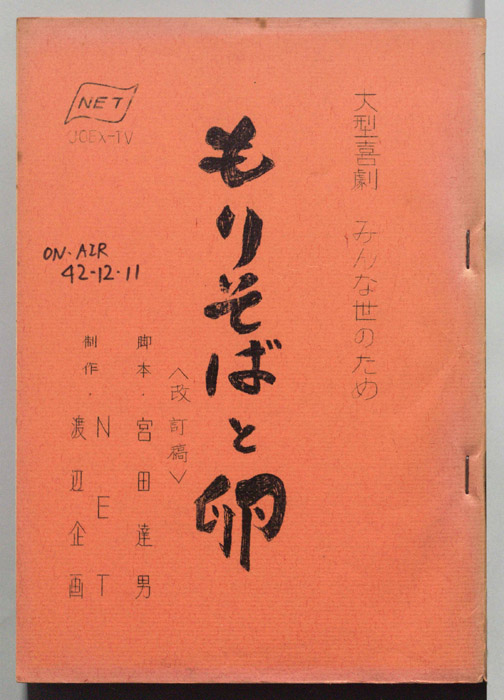 大型喜劇 みんな世のため
もりそばと卵
<改訂稿>
脚本・宮田達男
制作・NET
渡辺企画
NET
JOEX-TV
ON・AIR
42-12・11